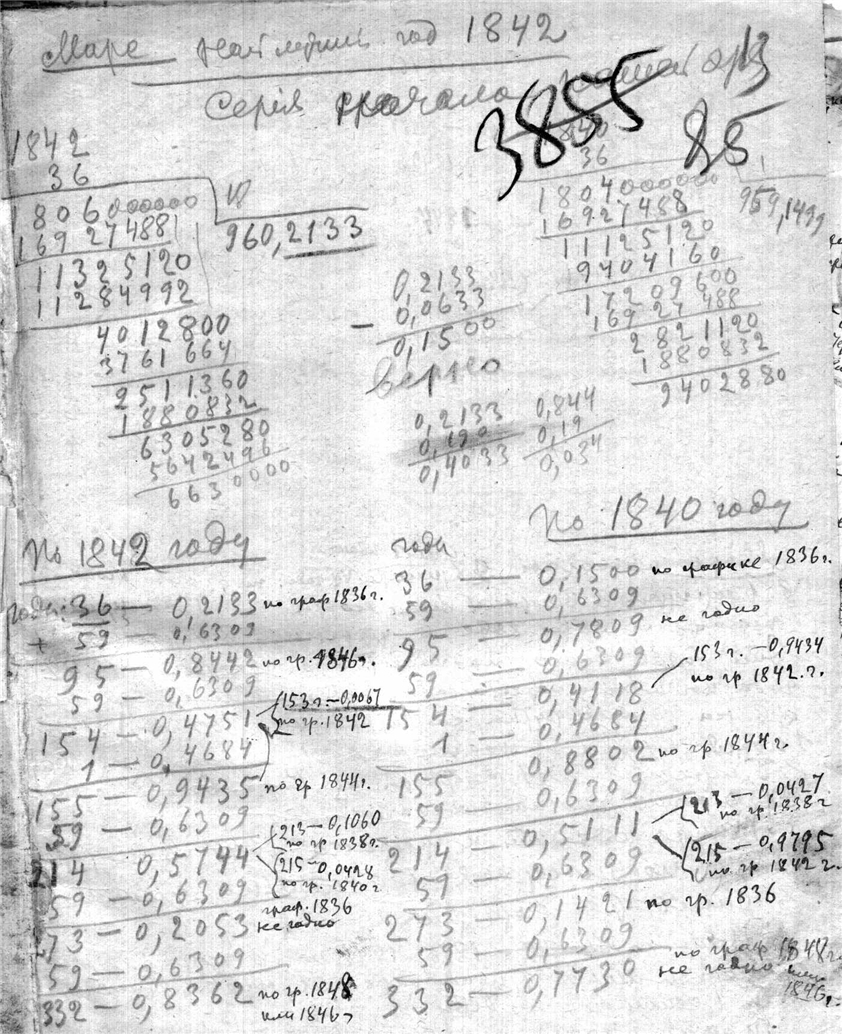 Марс наст. год 1842
Серія начала
3855
13
85
1842
36
1806000000
16927488
11325120
11284992
4012800
3761664
2511360
1880832
6305280
5642496
6630000
18
960,2133
1840
36
1804000000
16927488
11125120
9404160
17209600
16927488
2821120
1880832
9402880
959,1499
0,2133
0,0633
— 0,1500
верно
0,2133
0,190
0,4033
0,844
0,19
0,034
По 1842 году
годы: 36 — 0,2133 по граф 1836 г.
+ 59 — 0,6309
95 — 0,8442 по гр. 1846 г.
59 — 0,6309
154 — 0,4751 153 г. — 0,0067 по гр. 1842
1 — 0,4684
155 — 0,9435 по гр 1844 г.
59 — 0,6309
214 0,5744 213 — 0,1060 по гр 1838 г.
215 — 0,0428 по гр. 1840 г
59 — 0,6309
273 — 0,2053 граф. 1836 не годно
59 — 0,6309
332 — 0,8362 по гр. 1848 или 1846 г
По 1840 году
годы
36 — 0,1500 по графике 1836 г.
59 — 0,6309
95 — 0,7809 не годно
59 — 0,6309
154 — 0,4118 153 г. — 0,9434 по гр 1842. г.
1 — 0,4684
155 — 0,8802 по гр 1844 г.
59 — 0,6309
214 — 0,5111 213 — 0,0427 по гр. 1838 г
215 — 0,9795 по гр 1842 г.
59 — 0,6309
273 — 0,1421 по гр. 1836
59 — 0,6309
332 — 0,7730 по граф 1848 г. не годно или 1846 г.